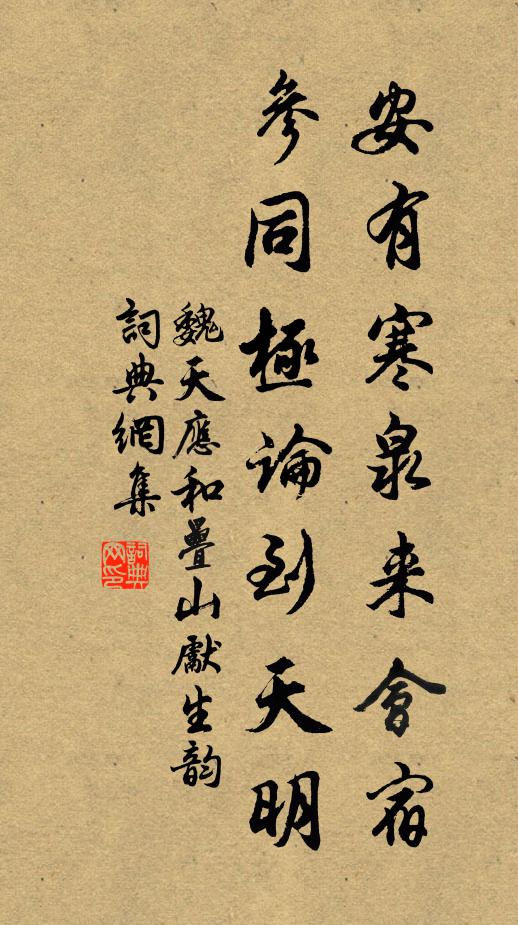 安有寒泉来會宿
參同極論到天明
魏天應和疊山獻生韵
詞典網集
詞典网印